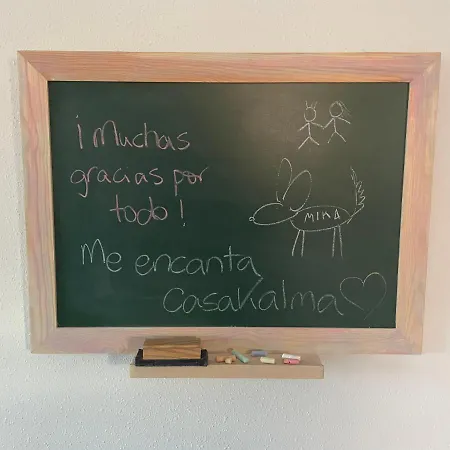 ¡Muchas
gracias por
todo!
MIKA
Me encanta
CasaKalma